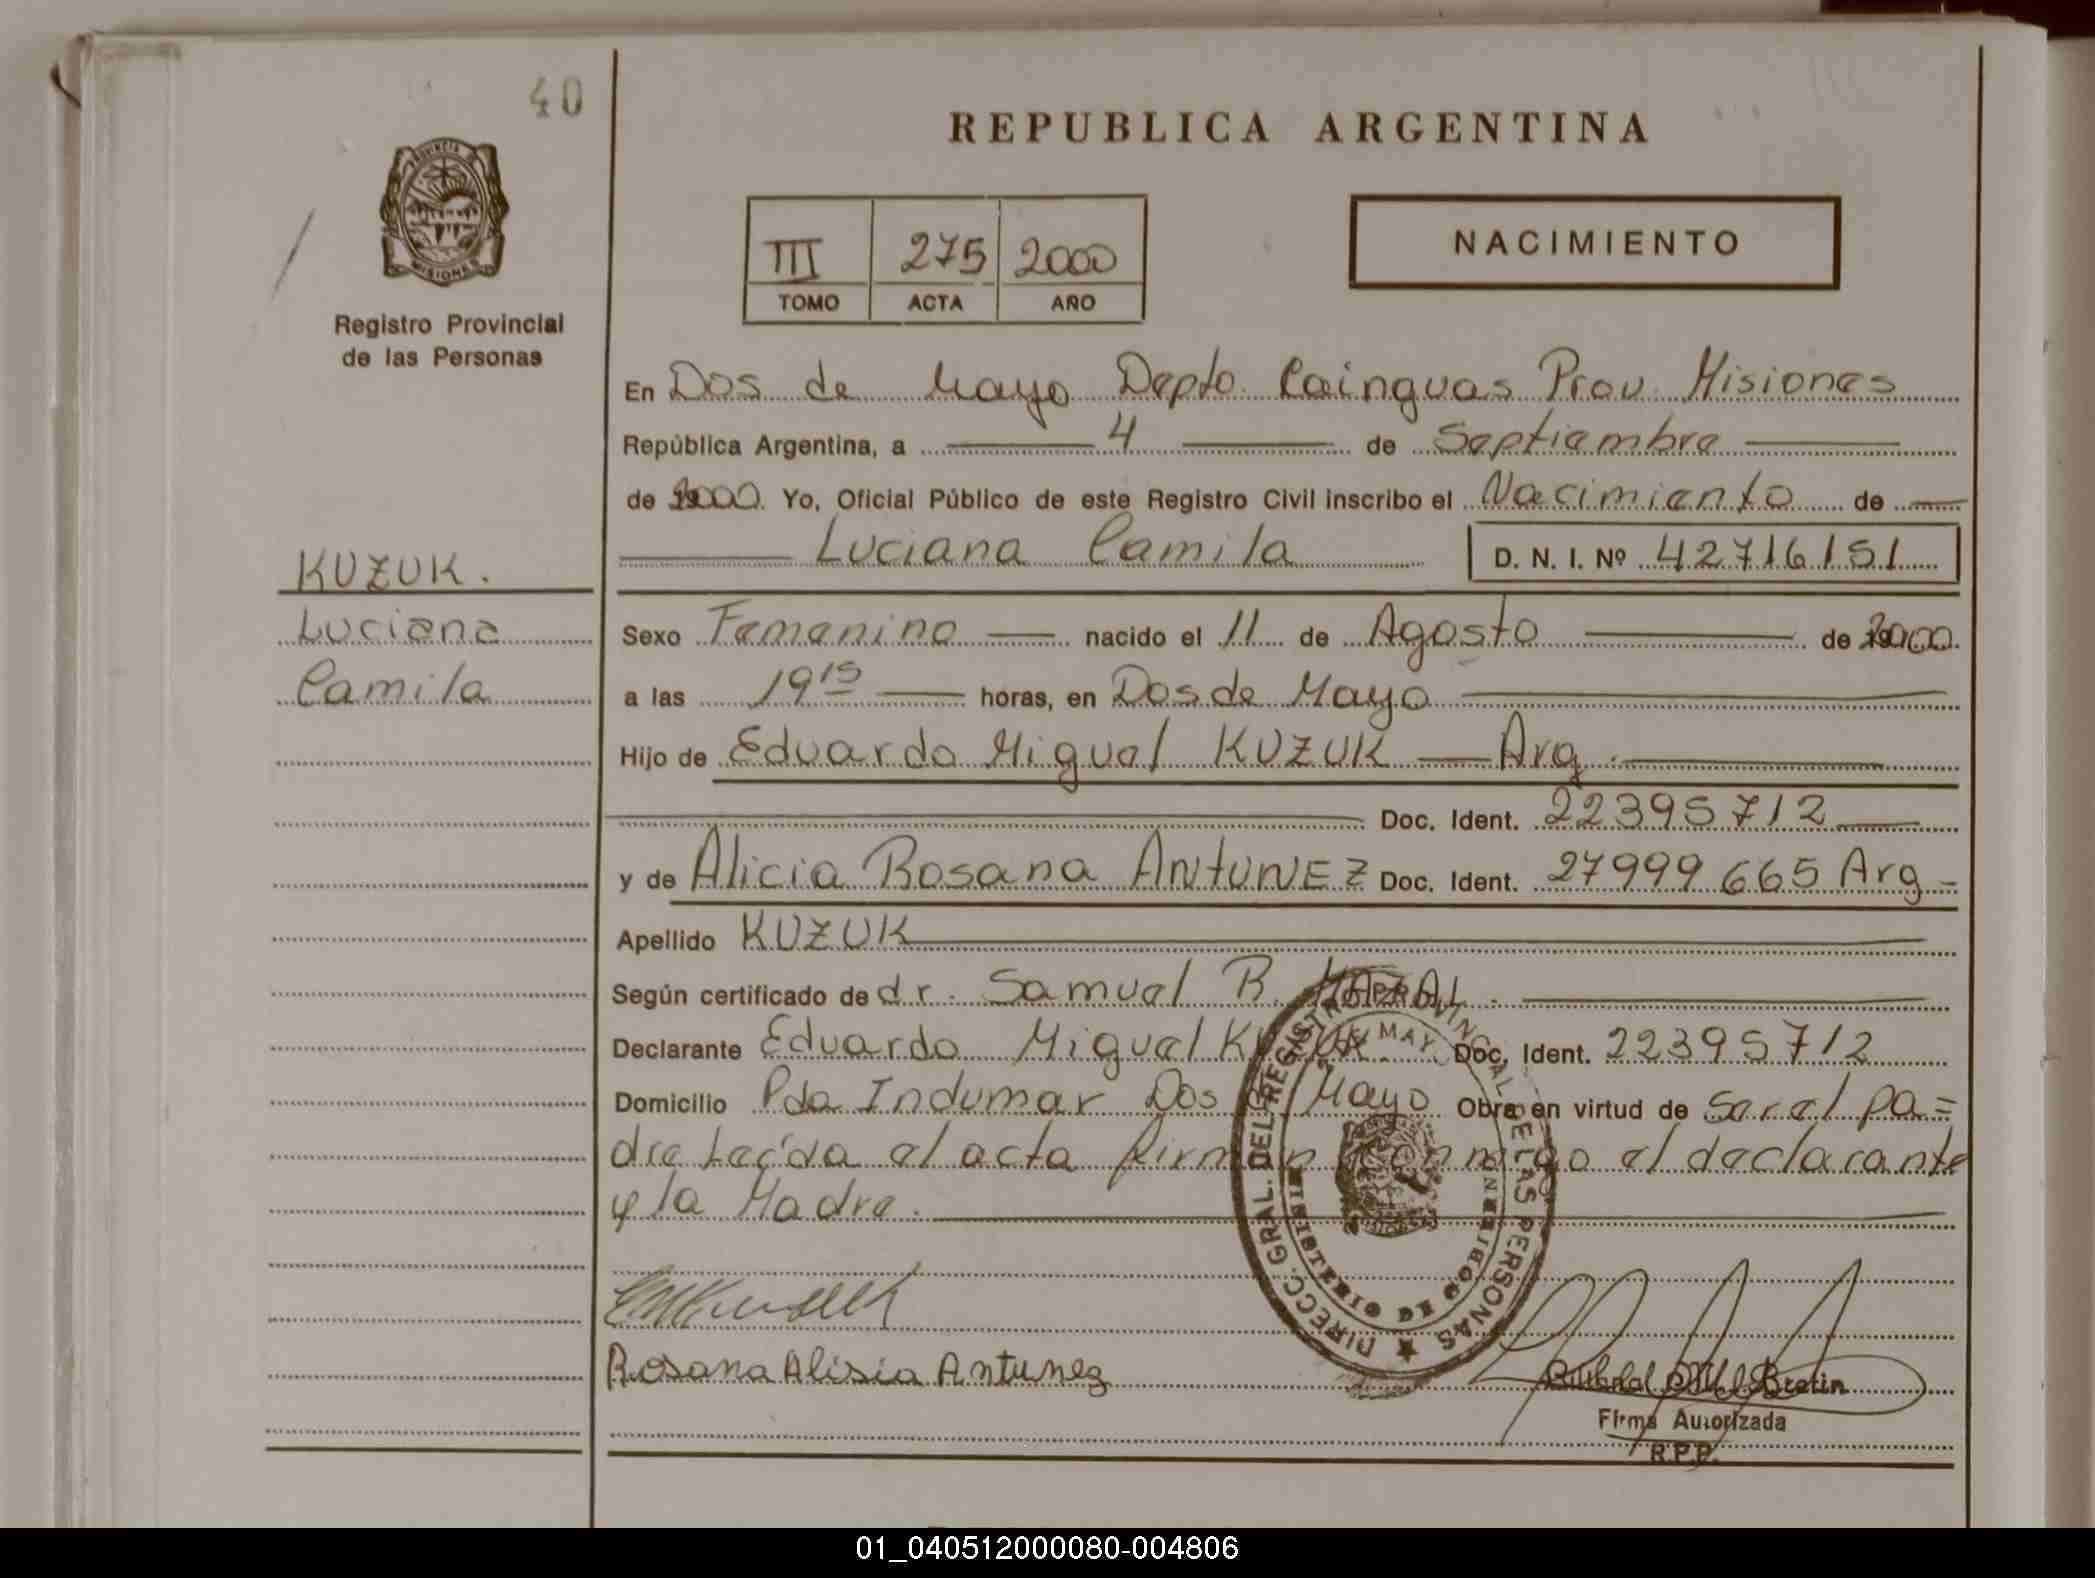 40
REPUBLICA ARGENTINA
PROVINCIA DE
MISIONES
Registro Provincial
de las Personas
III 275 2000
TOMO ACTA AÑO
NACIMIENTO
En Dos de Mayo Depto. Cainguas Prov. Misiones
República Argentina, a 4 de Septiembre
de 2000. Yo, Oficial Público de este Registro Civil inscribo el Nacimiento de
Luciana Camila D. N. I. Nº 42716151
KUZUK.
Luciana
Camila
Sexo Femenino nacido el 11 de Agosto de 2000.
a las 19 15 horas, en Dos de Mayo
Hijo de Eduardo Miguel KUZUK — Arg.
Doc. Ident. 22395712
y de Alicia Rosana ANTUNEZ Doc. Ident. 27999665 Arg
Apellido KUZUK
Según certificado de dr. Samuel B. MAZAL.
Declarante Eduardo Miguel KUZUK. Doc. Ident. 22395712
Domicilio Pda Indumar Dos de Mayo Obra en virtud de ser el pa=
dre Leída el acta firman conmigo el declarante
y la Madre.
DIRECC. GRAL. DEL REGISTRO PROVINCIAL DE LAS PERSONAS
MINISTERIO DE GOBIERNO
Rosana Alisia Antunez
Bretin
Firma Autorizada
R.P.P.
01_040512000080-004806